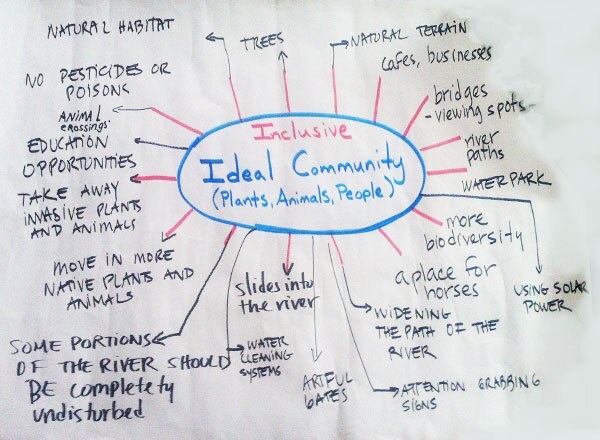 NATURAL HABITAT
TREES
NATURAL TERRAIN
cafes, businesses
NO PESTICIDES OR
POISONS
bridges
-viewing spots-
ANIMAL
crossings
EDUCATION
OPPORTUNITIES
river
paths
Inclusive
Ideal Community
(Plants, Animals, People)
TAKE AWAY
INVASIVE PLANTS
AND ANIMALS
WATERPARK
MOVE IN MORE
NATIVE PLANTS AND
ANIMALS
more
biodiversity
a place for
horses
USING SOLAR
POWER
slides into
the river
WIDENING
THE PATH OF THE
RIVER
SOME PORTIONS
OF THE RIVER SHOULD
BE completely
undisturbed
WATER
CLEANING
SYSTEMS
ARTFUL
GATES
ATTENTION GRABBING
SIGNS